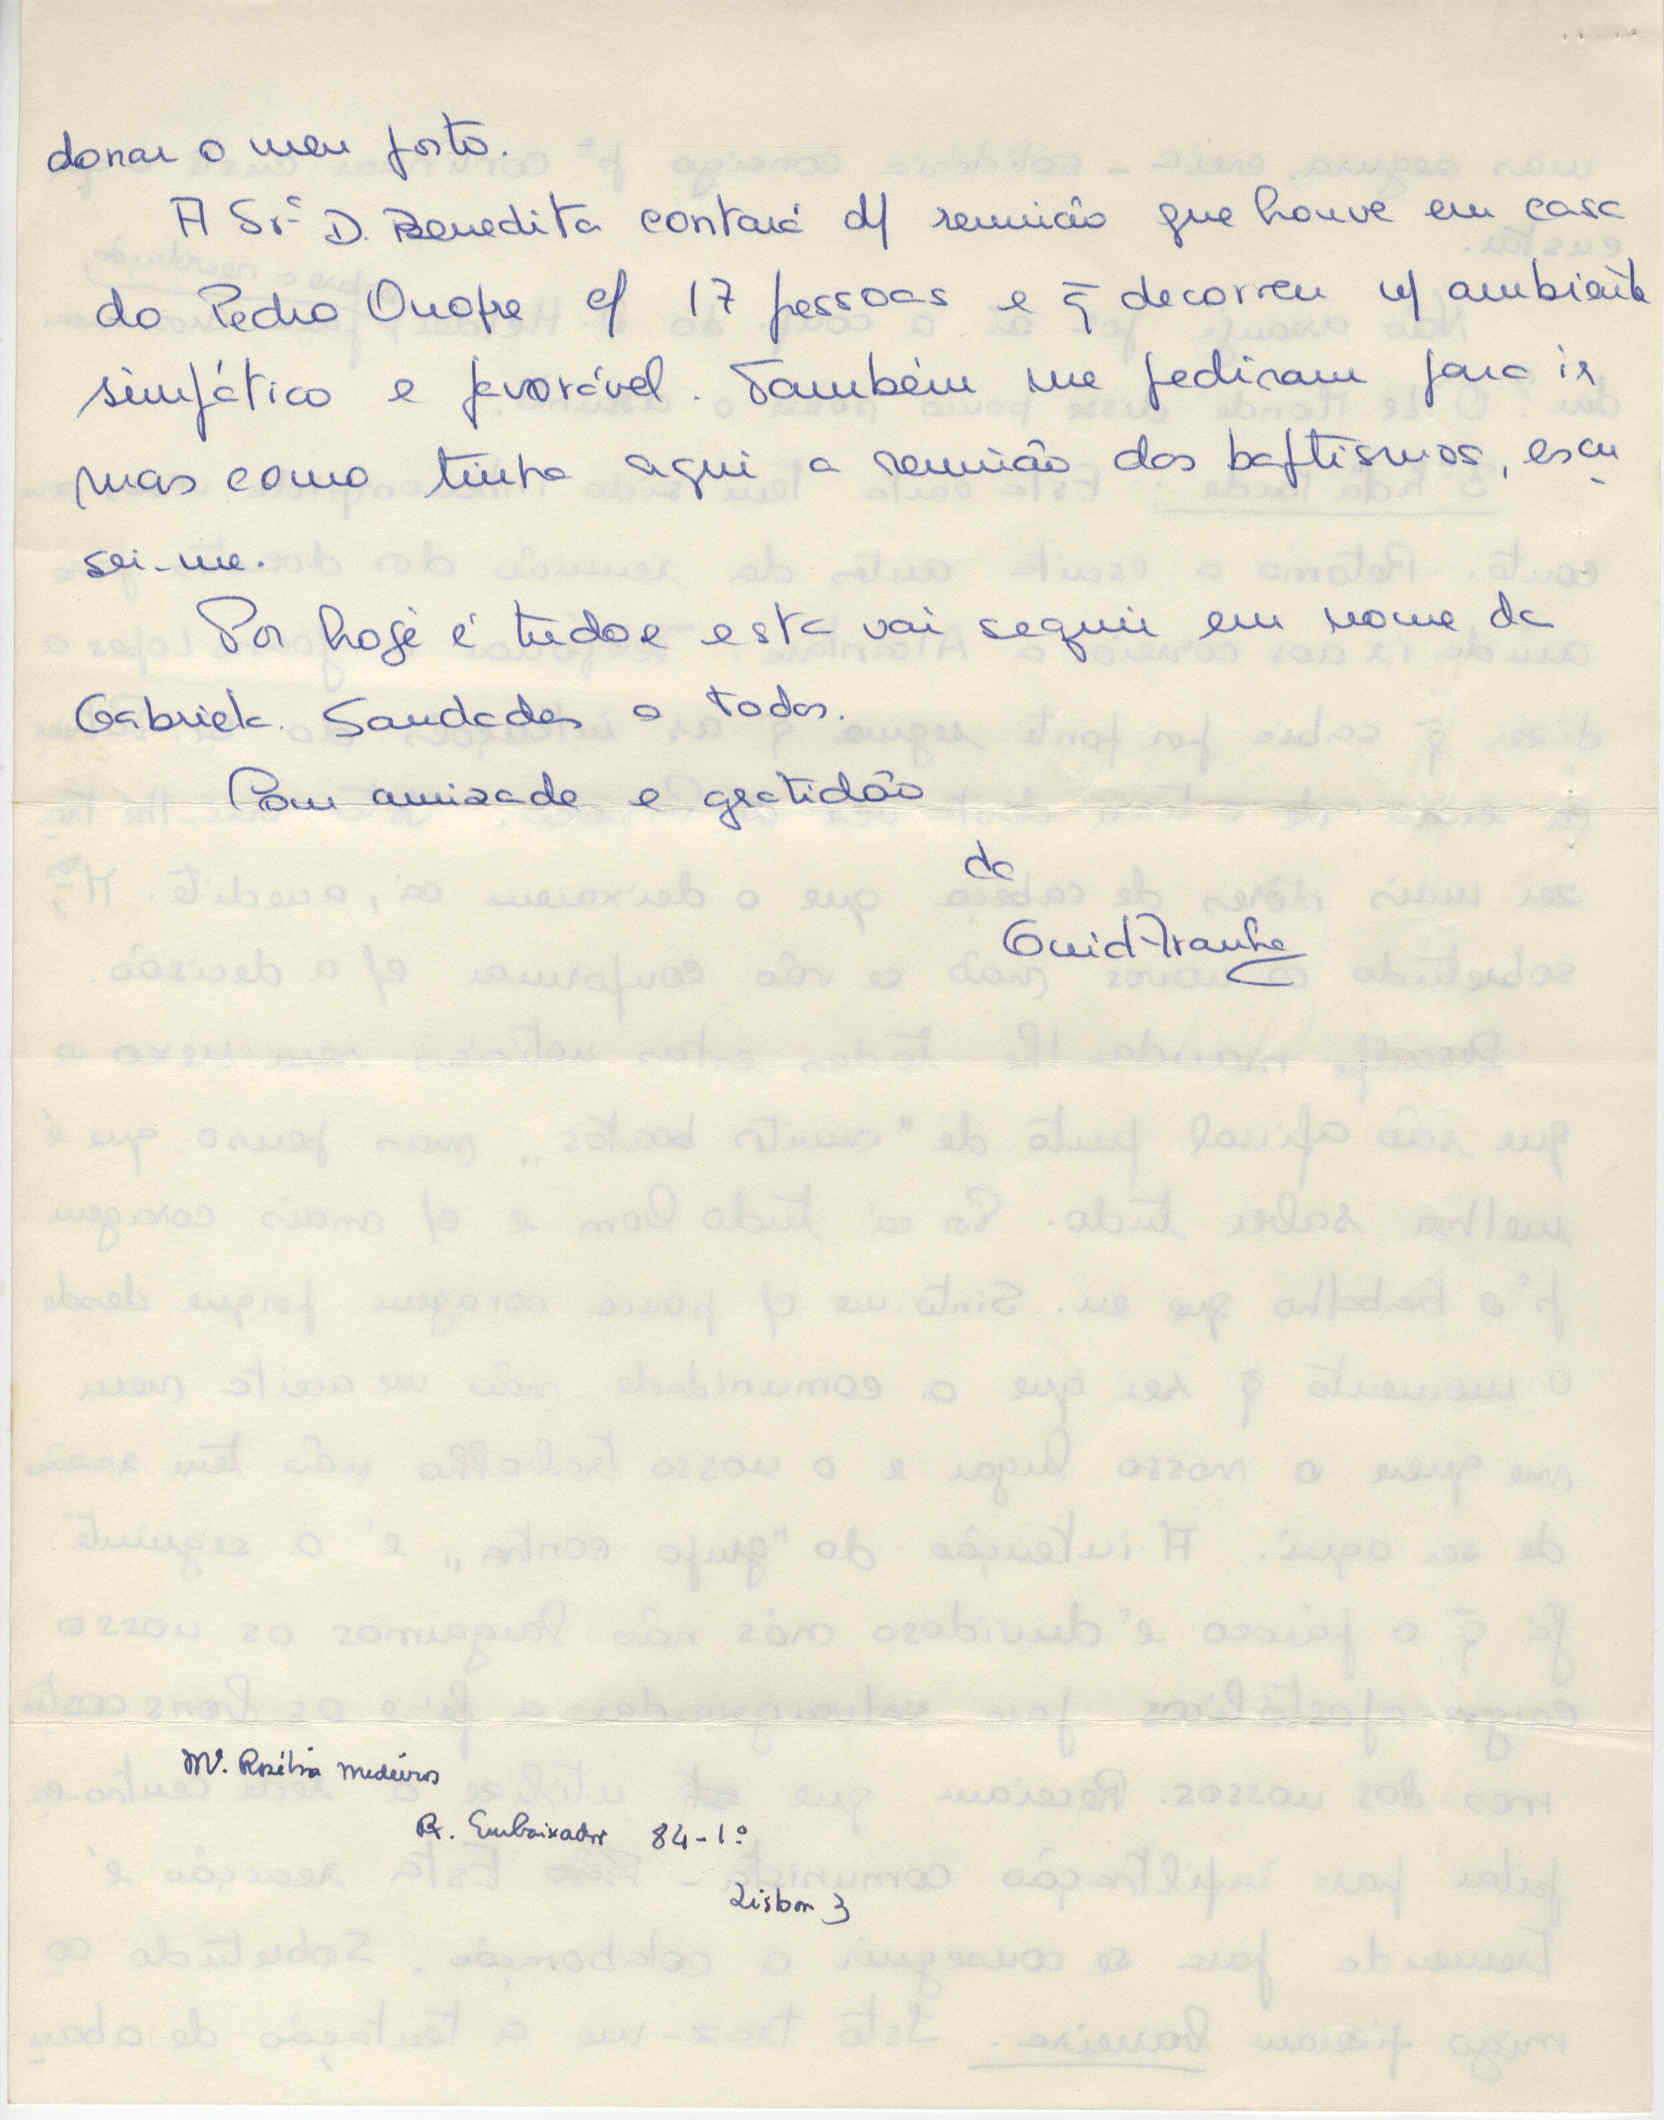 donar o meu posto.
A Srª D. Benedita contará d/ reunião que houve em casa
do Pedro Onofre c/ 17 pessoas e q̄ decorreu n/ ambiente
simpático e favorável. Também me pediram para ir
mas como tinha aqui a reunião dos baptismos, escu
sei-me.
Por hoje é tudo e esta vai seguir em nome da
Gabriela. Saudades a todos.
Com amizade e gratidão
da
Mª. Rosélia Medeiros
R. Embaixador 84-1º
Lisboa 3